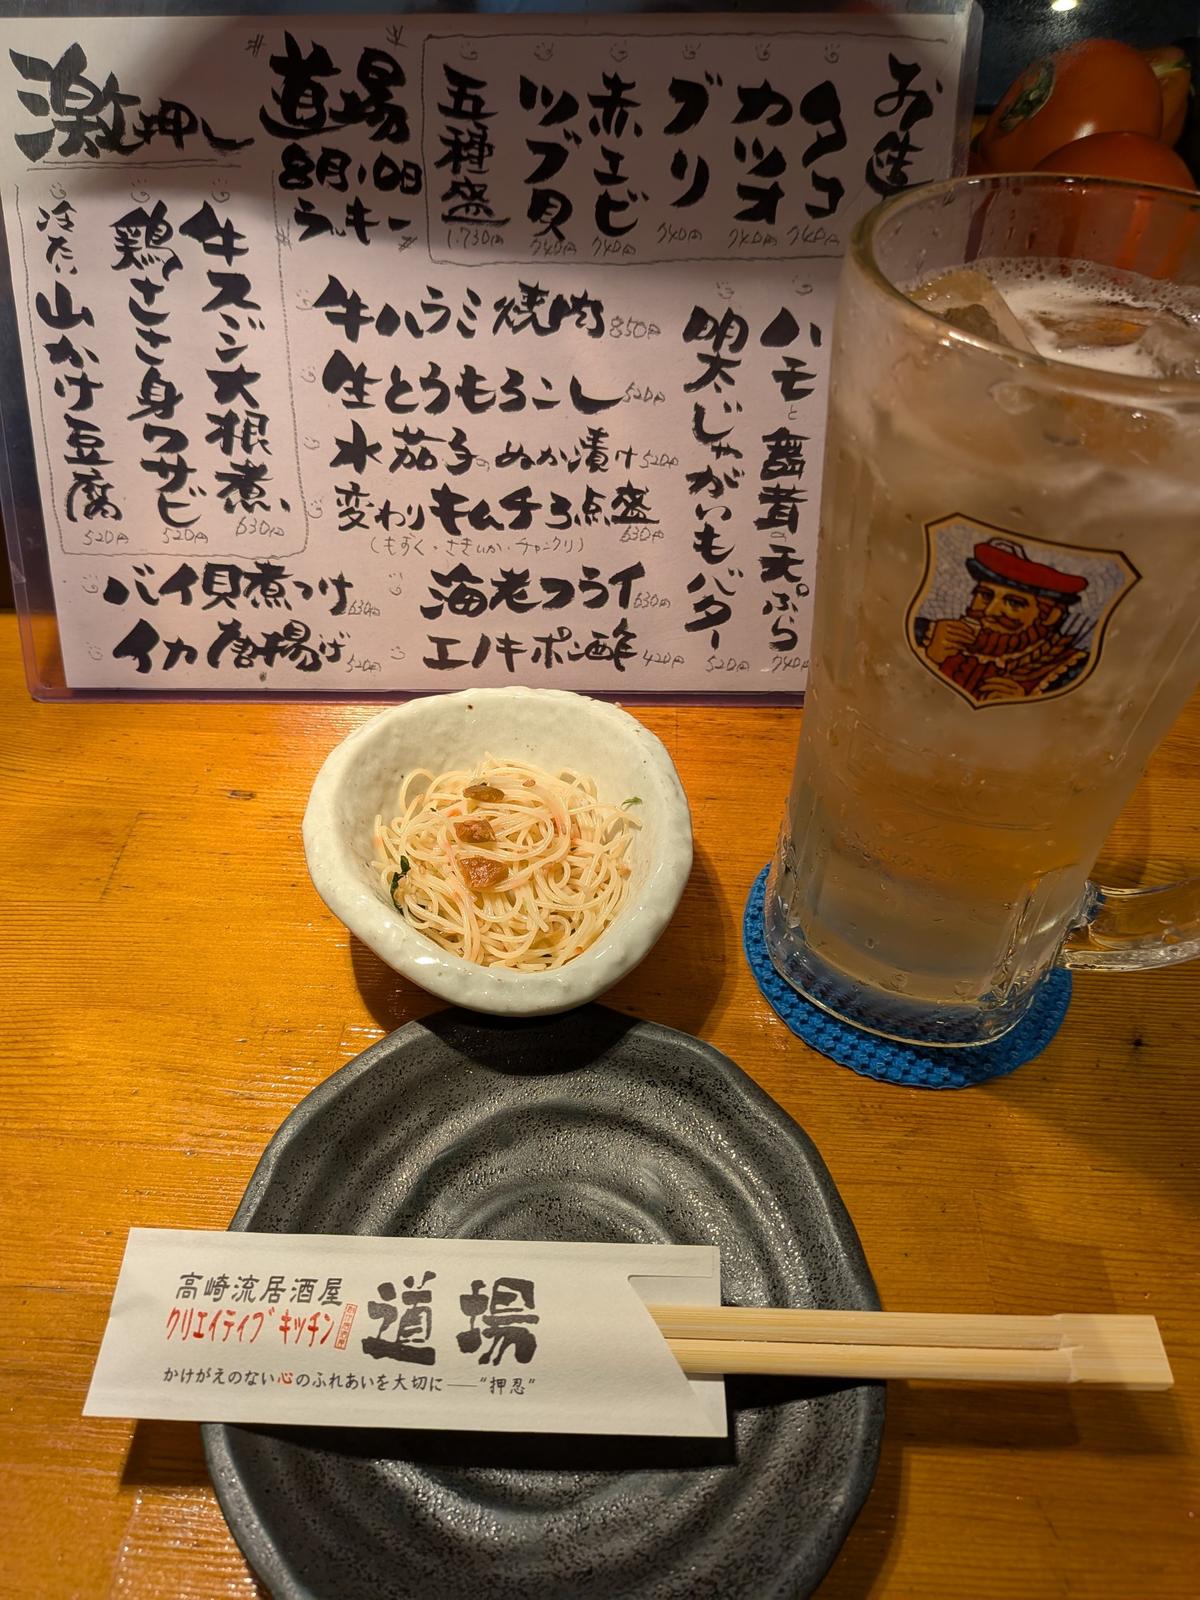 激押し
道場
8月10日
ラッキー
お造
タコ 740円
カツオ 740円
ブリ 740円
赤エビ 740円
ツブ貝 740円
五種盛 1.730円
牛スジ大根煮 630円
鶏ささ身ワサビ 520円
冷たい山かけ豆腐 520円
牛ハラミ焼肉 850円
生とうもろこし 520円
水茄子のぬか漬け 520円
変わりキムチ3点盛 630円
(もずく・さきいか・チャンクリ)
ハモと舞茸の天ぷら 740円
明太じゃがいもバター 520円
バイ貝煮つけ 630円
海老フライ 630円
イカ唐揚げ 520円
エノキポン酢 420円
高崎流居酒屋
クリエイティブキッチン
道場
かけがえのない心のふれあいを大切に——“押忍”